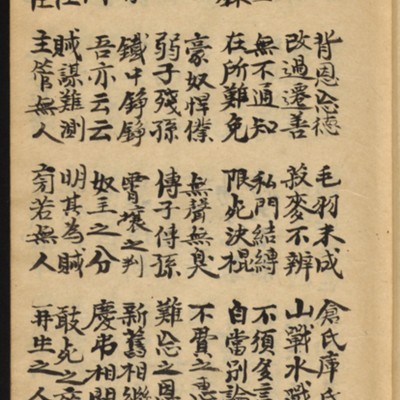 背恩忘德 毛羽未成 倉氏庫氏
改過遷善 菽麥不辨 山戰水戰
無不通知 私門結縛 不須多言
在所難免 限死決棍 自當別論
豪奴悍僕 無聲無臭 不貲之惠
弱子殘孫 傳子傳孫 難忘之恩
鐵中錚錚 霄壤之判 新舊相繼
吾亦云云 奴主之分 慶弔相問
賊謀難測 明其為賊 敢死之
主管無人 旁若無人 再生之人